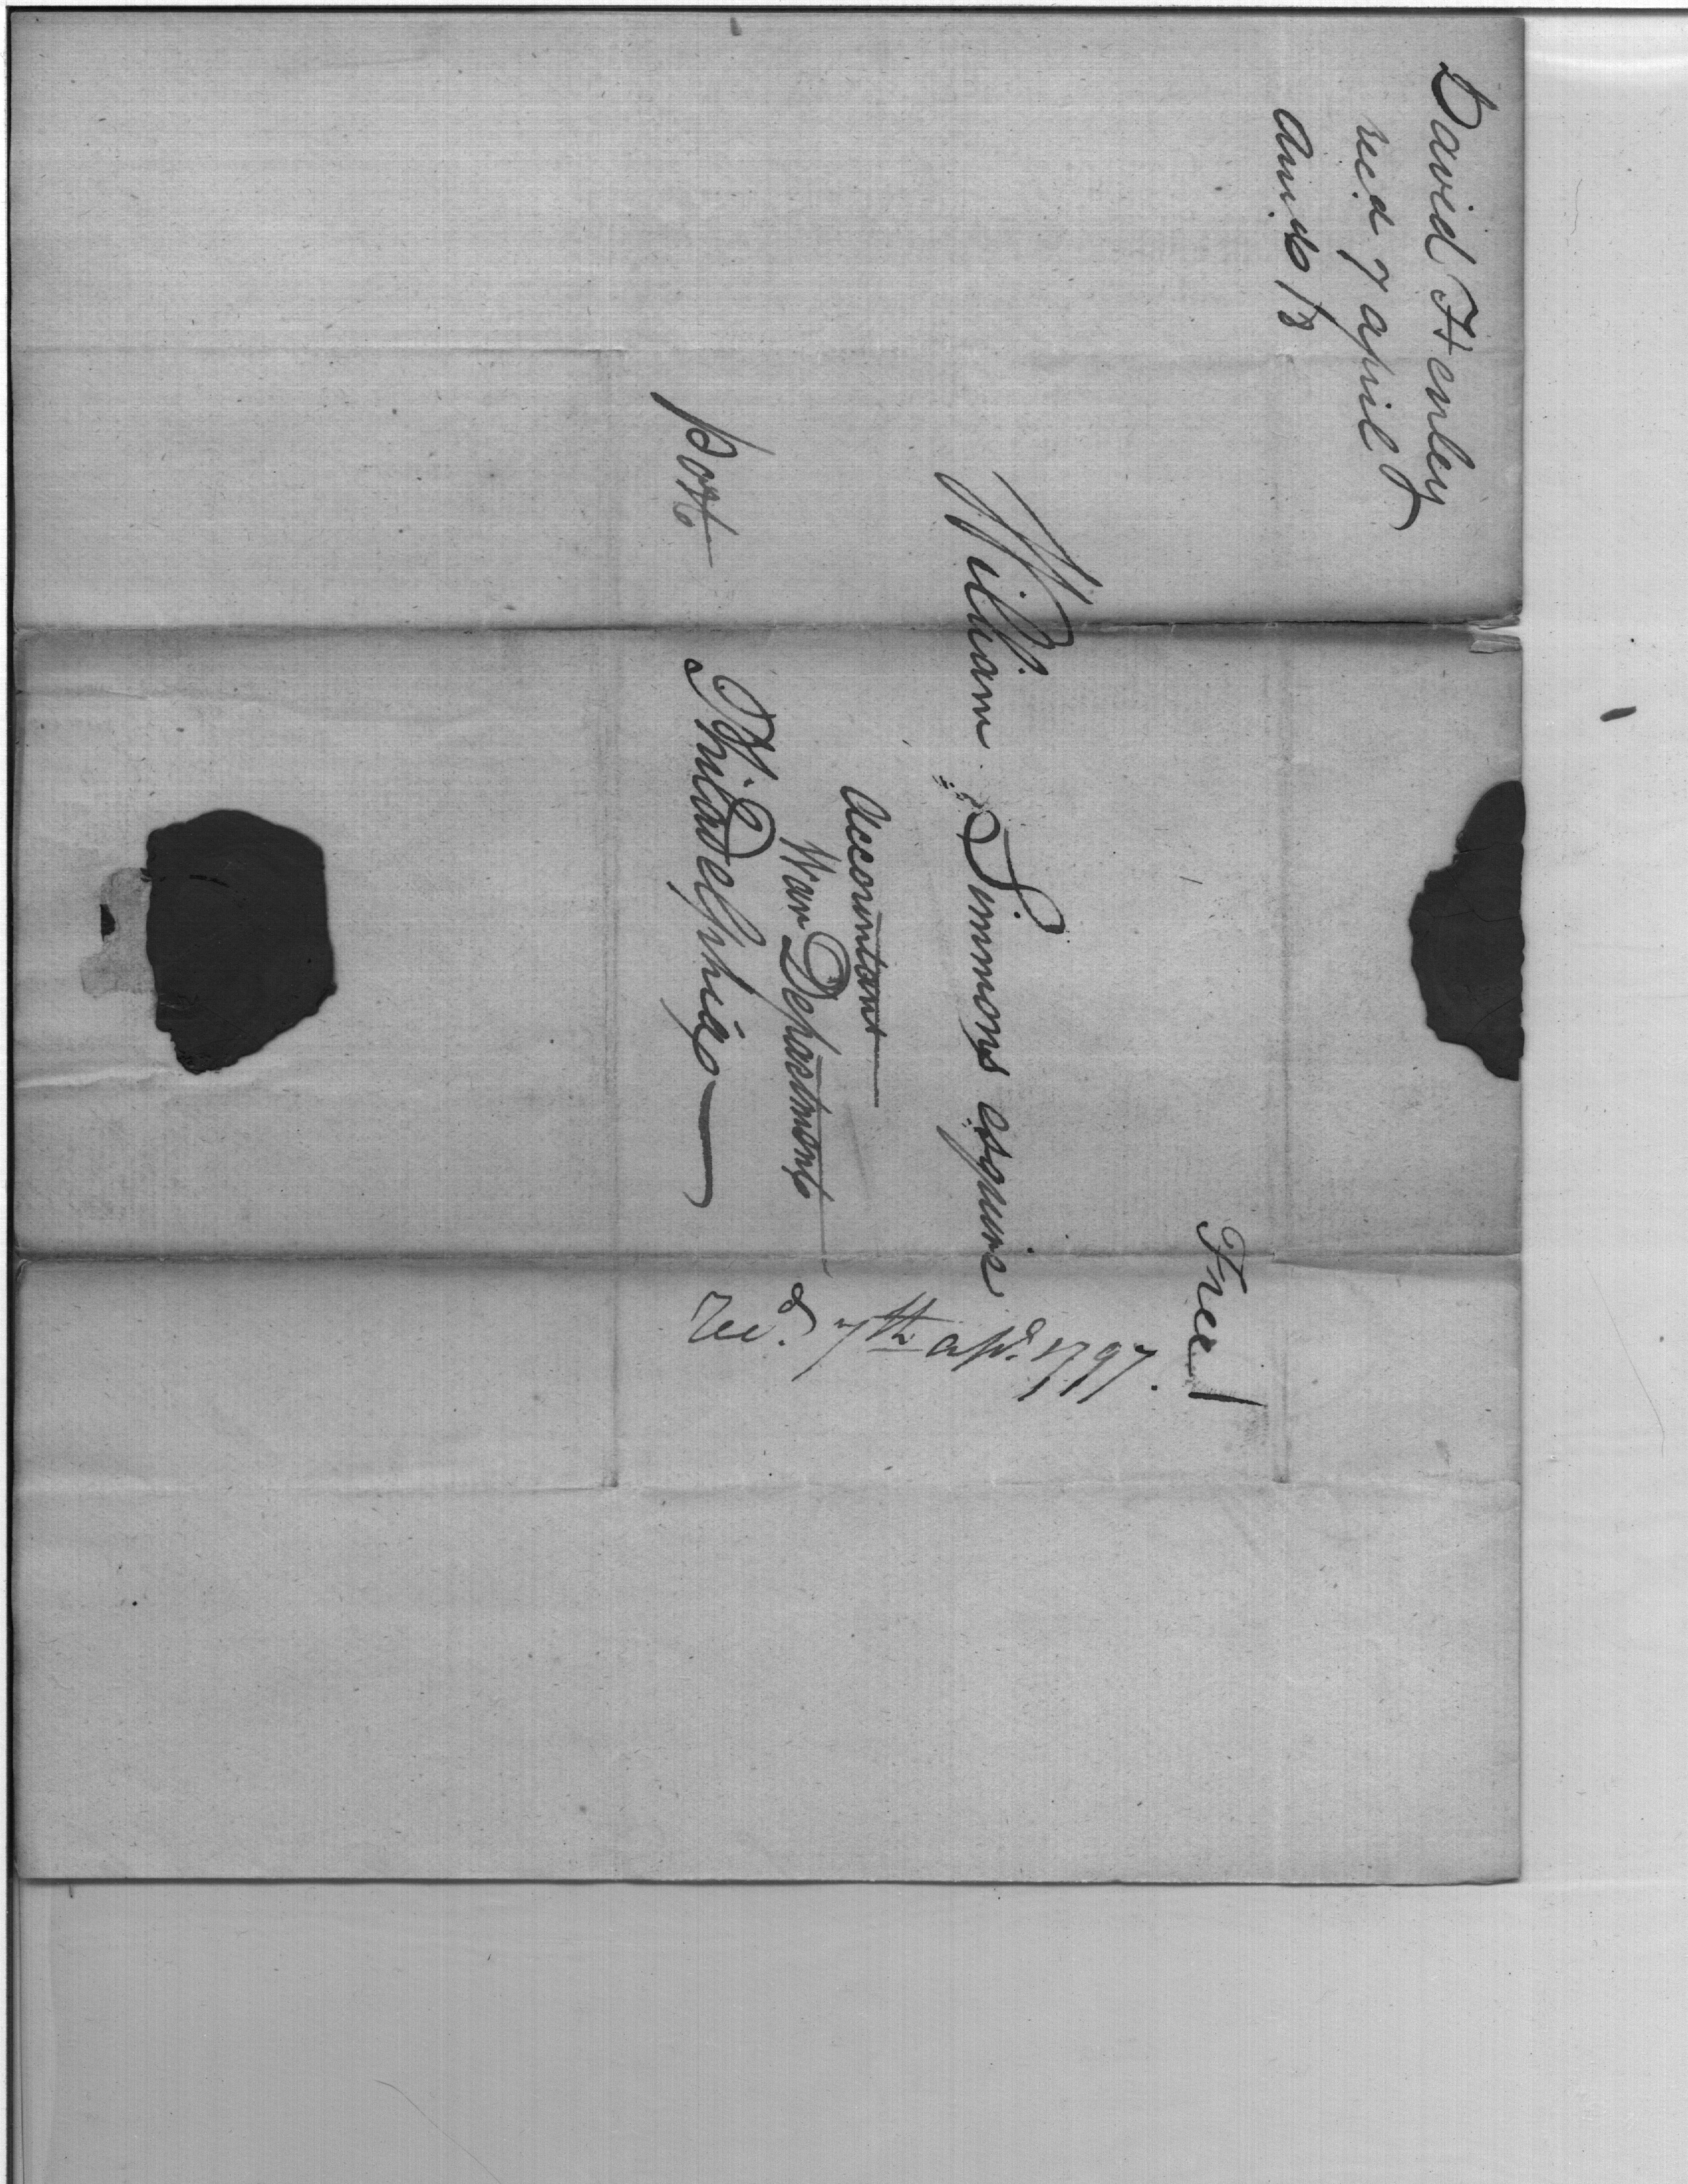 David Henley
recd 7 april
Free
William Simmons esquire
Accountant
War Department
post Philadelphia
Recd. 7th apl. 1797.